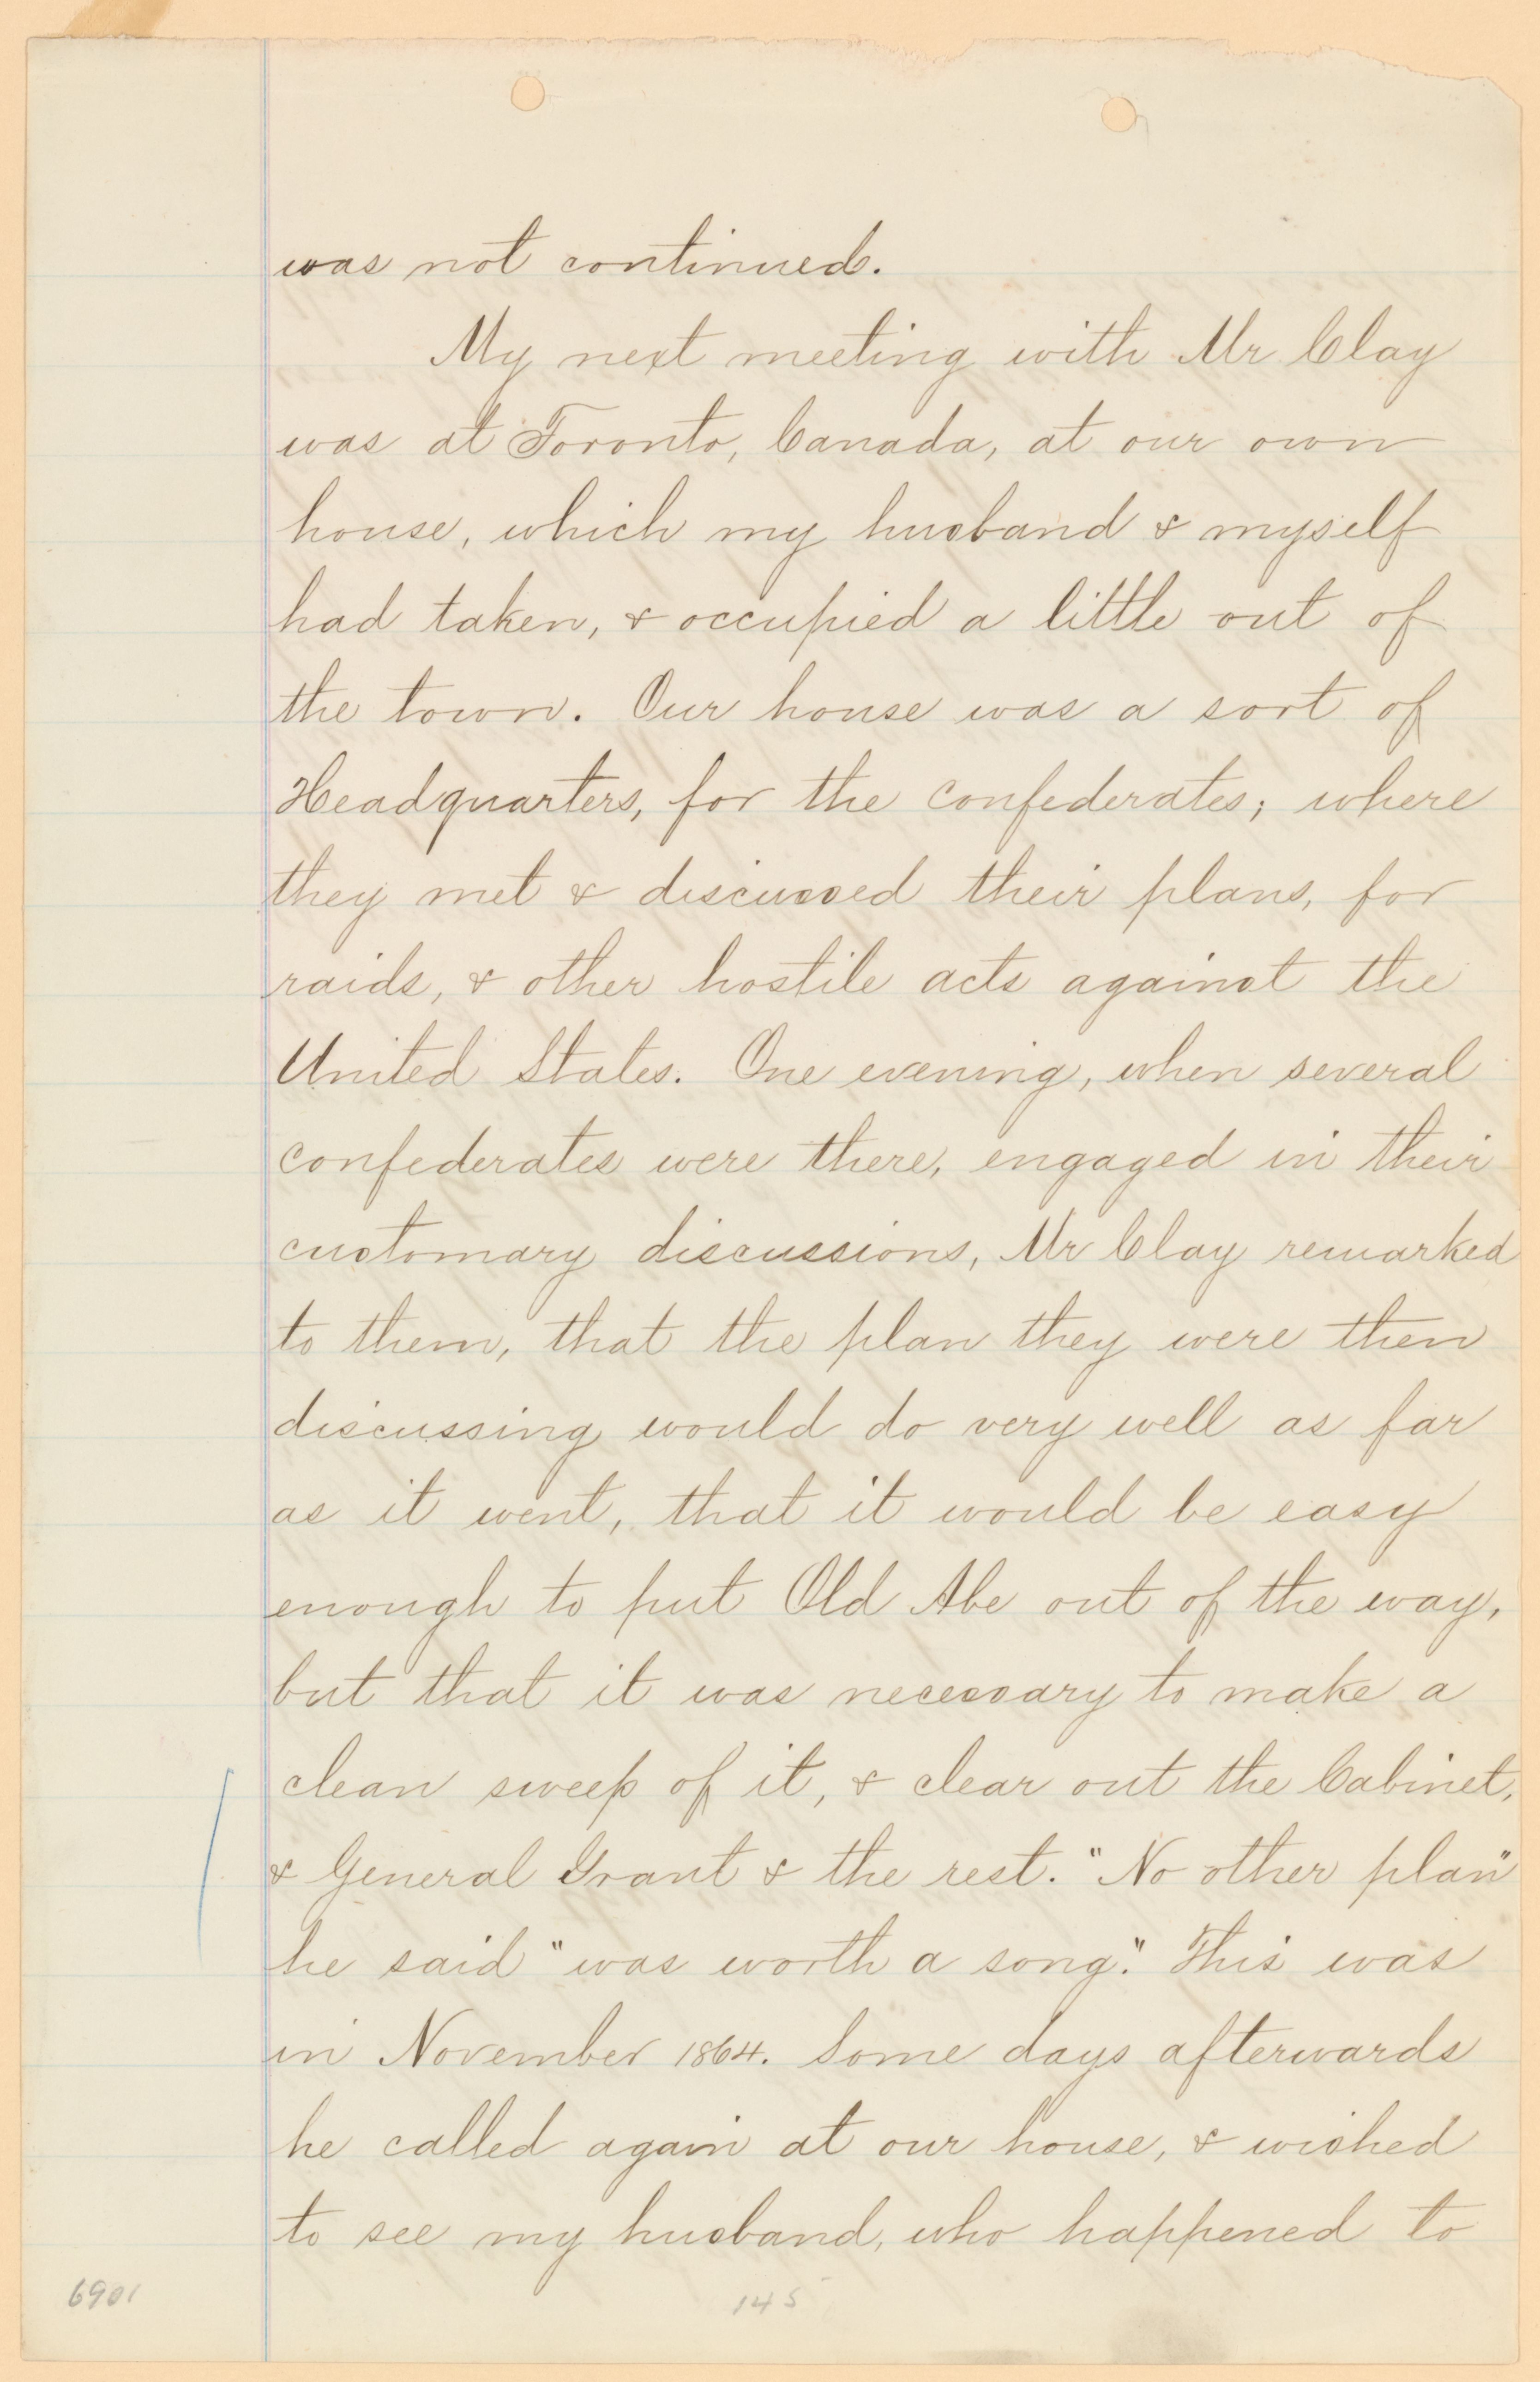 was not continued.
My next meeting with Mr Clay
was at Toronto, Canada, at our own
house, which my husband & myself
had taken, & occupied a little out of
the town. Our house was a sort of
Headquarters, for the confederates; where
they met & discussed their plans, for
raids, & other hostile acts against the
United States. One evening, when several
confederates were there, engaged in their
customary discussions, Mr Clay remarked
to them, that the plan they were then
discussing would do very well as far
as it went, that it would be easy
enough to put Old Abe out of the way,
but that it was necessary to make a
clean sweep of it, & clear out the Cabinet,
& General Grant & the rest. "No other plan"
he said "was worth a song." This was
in November 1864. Some days afterwards
he called again at our house, & wished
to see my husband, who happened to
6901
145